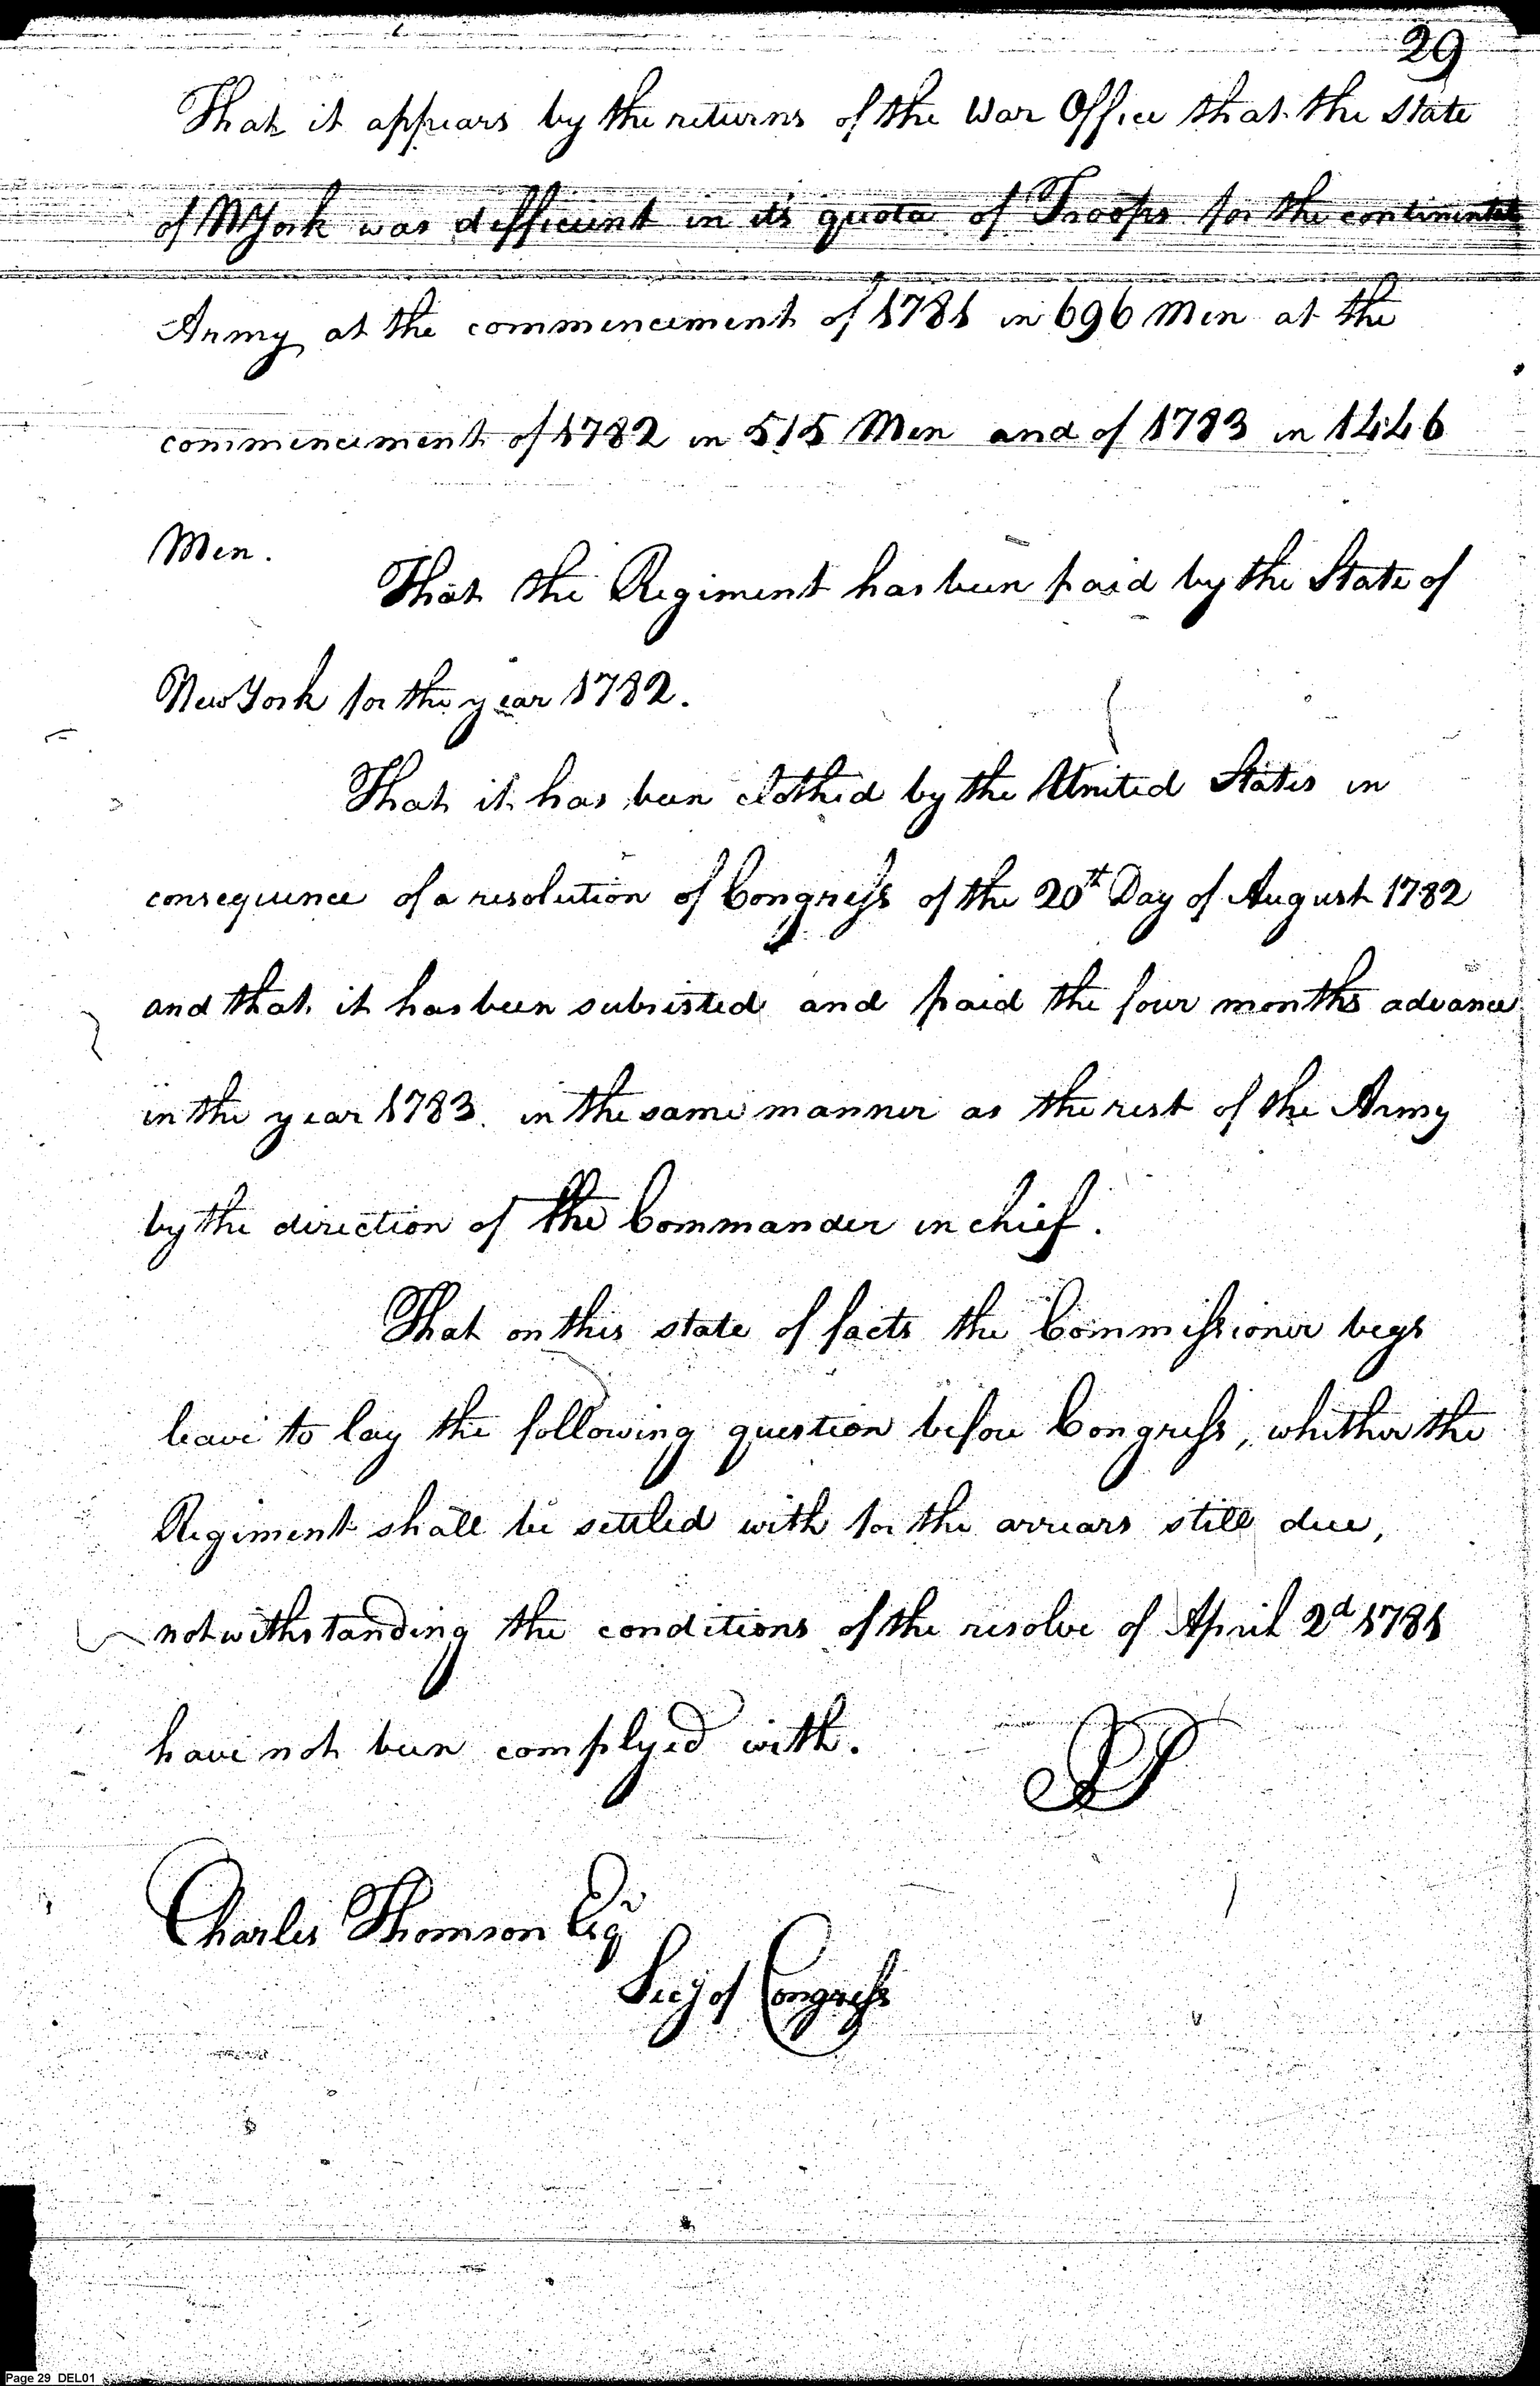 29
That it appears by the returns of the War Office that the State
of NYork was defficient in its quota of Troops for the continental
Army at the commencement of 1781 in 696 Men at the
commencement of 1782 in 515 Men and of 1783 in 1446
Men.
That the Regiment has been paid by the State of
New York for the year 1782.
That it has been clothed by the United States in
consequence of a resolution of Congress of the 20th Day of August 1782
and that it has been subsisted and paid the four months advance
in the year 1783. in the same manner as the rest of the Army
by the direction of the Commander in chief.
That on this state of facts the Commissioner begs
leave to lay the following question before Congress, whether the
Regiment shall be settled with for the arrears still due,
notwithstanding the conditions of the resolve of April 2d 1781
have not been complyed with.
Charles Thomson Esqr
Secy of Congress
Page 29 DEL01